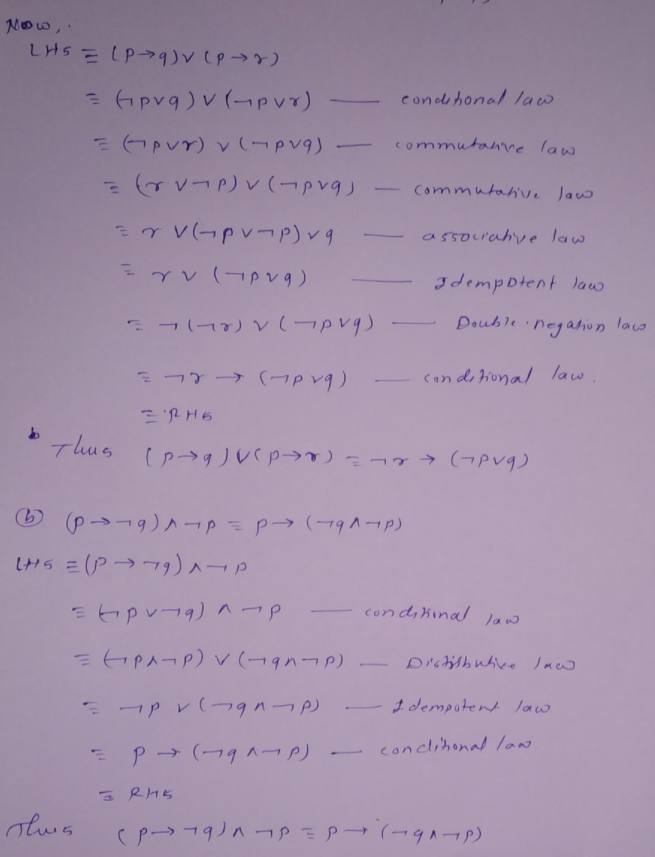 Now,
LHS ≡ (p→q)∨(p→r)
≡ (¬p∨q) ∨ (¬p∨r) — conditional law
≡ (¬p∨r) ∨ (¬p∨q) — commutative law
≡ (r ∨¬p) ∨ (¬p∨q) — commutative law
≡ r ∨(¬p ∨ ¬p) ∨ q — associative law
≡ r ∨ (¬p∨q) — Idempotent law
≡ ¬(¬r) ∨ (¬p∨q) — Double negation law
≡ ¬r → (¬p∨q) — conditional law.
≡ RHS
Thus (p→q)∨(p→r) ≡ ¬r → (¬p∨q)
(b) (p→¬q)∧¬p ≡ p→(¬q∧¬p)
LHS ≡ (p→¬q)∧¬p
≡ (¬p∨¬q) ∧ ¬p — conditional law
≡ (¬p∧¬p) ∨ (¬q∧¬p) — Distributive law
≡ ¬p ∨ (¬q∧¬p) — Idempotent law
≡ p → (¬q∧¬p) — conditional law
≡ RHS
Thus (p→¬q)∧¬p ≡ p→(¬q∧¬p)